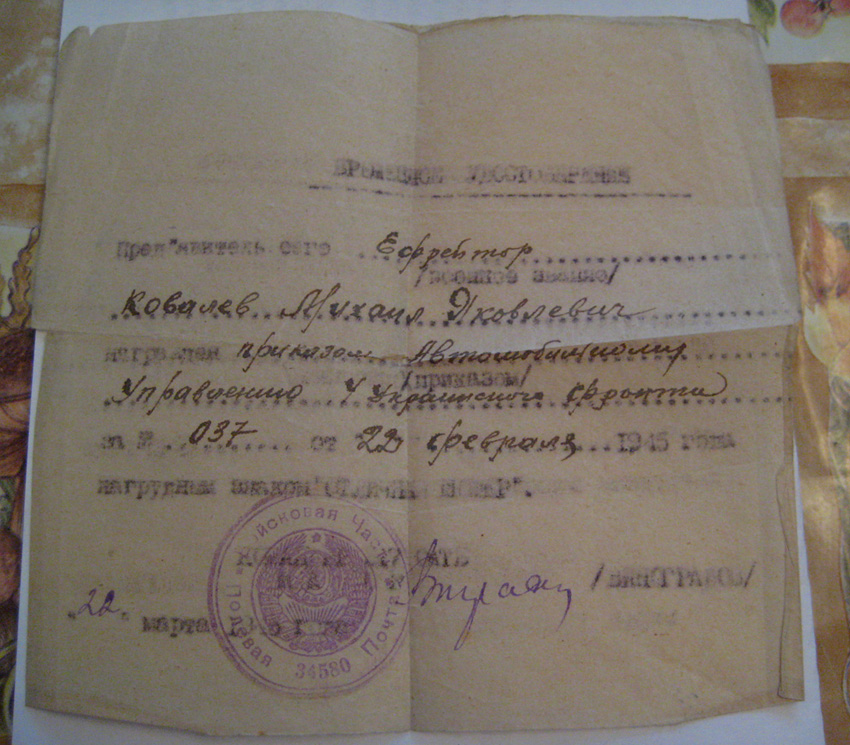 ВРЕМЕННОЕ УДОСТОВЕРЕНИЕ
Пред"явитель сего ... Ефрейтор
/воинское звание/
Ковалев Михаил Яковлевич
награжден приказом Автомобильному
/приказом/
Управлению 4 Украинского фронта
за № 037 от 22 февраля 1945 года
нагрудным знаком "ОТЛИЧНЫЙ ШОФЕР".
КОМАНДИР ЧАСТЬ
/ВИНОГРАДОВ/
"22" марта 1945 г.
Войсковая Часть
Полевая Почта
34580